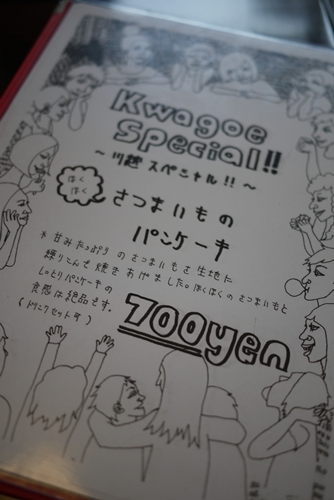 Kwagoe
Special!!
～川越スペシャル!!～
ほく
ほく
さつまいもの
パンケーキ
＊甘みたっぷりのさつまいもを生地に
練りこんで焼きあげました。ほくほくのさつまいもと
しっとりパンケーキの
食感は絶品です。
(ドリンクセット可)
700yen